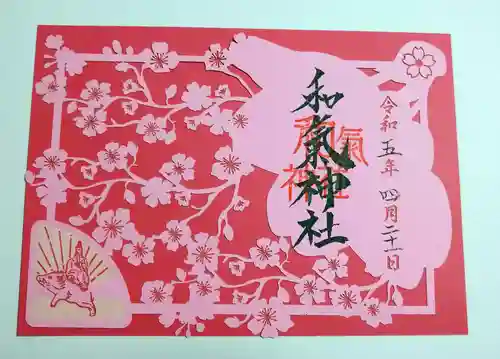 令和五年四月二十一日
和氣神社
和氣
神社